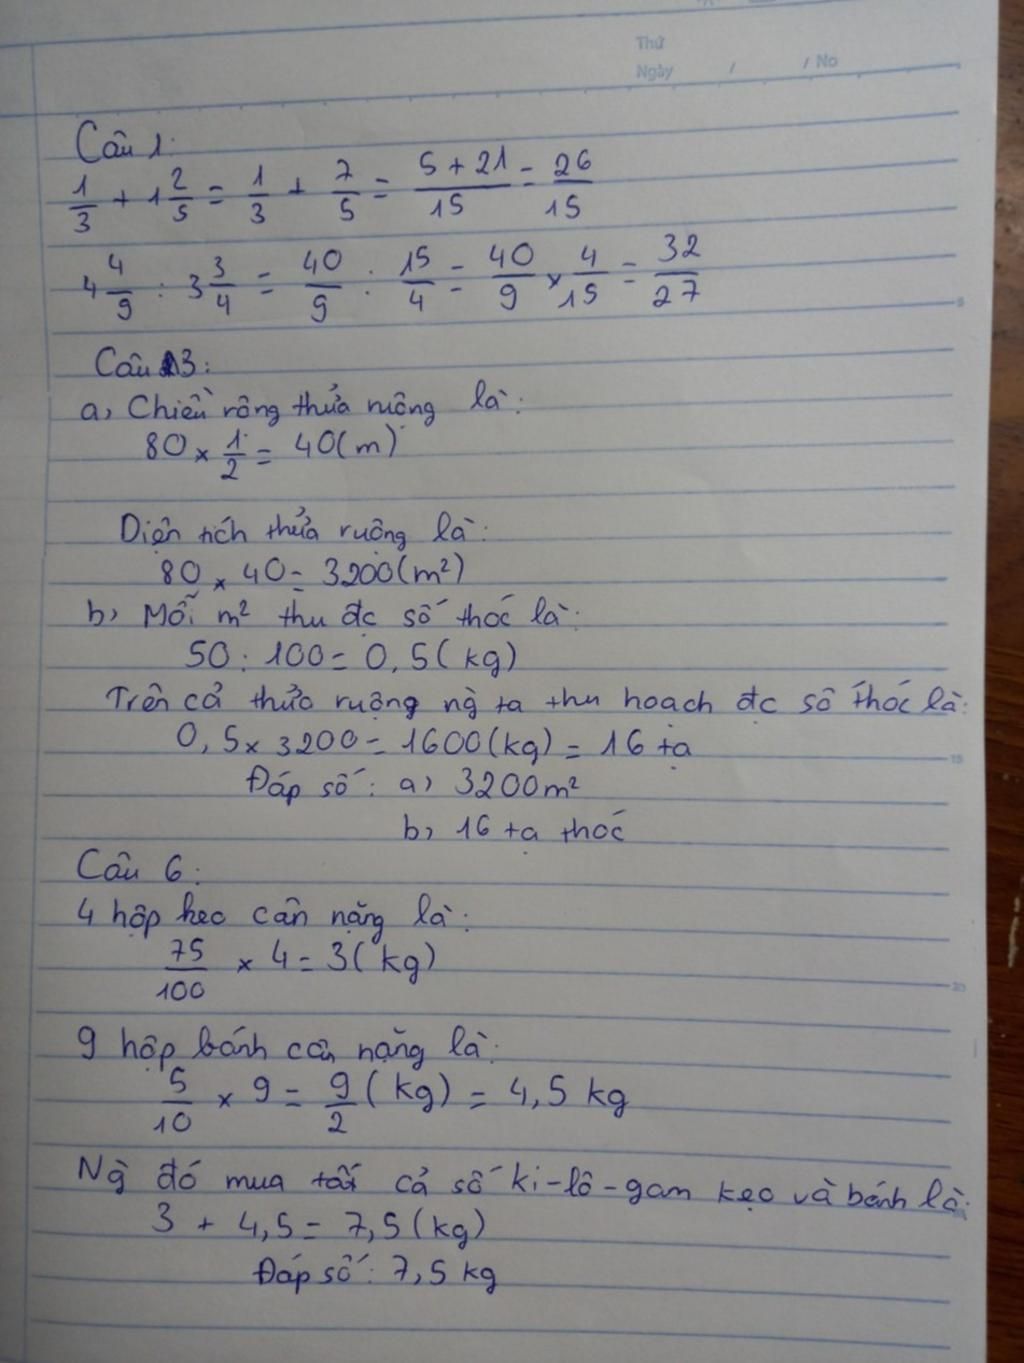 Thứ
Ngày / / No
Câu 1:
1/3 + 1 2/5 = 1/3 + 7/5 = (5 + 21)/15 = 26/15
4 4/9 : 3 3/4 = 40/9 : 15/4 = 40/9 × 4/15 = 32/27
5
Câu 3:
a, Chiều rộng thửa ruộng là:
80 × 1/2 = 40(m)
Diện tích thửa ruộng là:
80 × 40 = 3200(m²)
b, Mỗi m² thu đc số thóc là:
50 : 100 = 0,5(kg)
Trên cả thửa ruộng ng` ta thu hoạch đc số thóc là:
0,5 × 3200 = 1600(kg) = 16 tạ
15
Đáp số: a, 3200m²
b, 16 tạ thóc
Câu 6:
4 hộp kẹo cân nặng là:
75/100 × 4 = 3(kg)
20
9 hộp bánh cân nặng là:
5/10 × 9 = 9/2(kg) = 4,5 kg
Ng` đó mua tất cả số ki-lô-gam kẹo và bánh là:
3 + 4,5 = 7,5(kg)
Đáp số: 7,5 kg